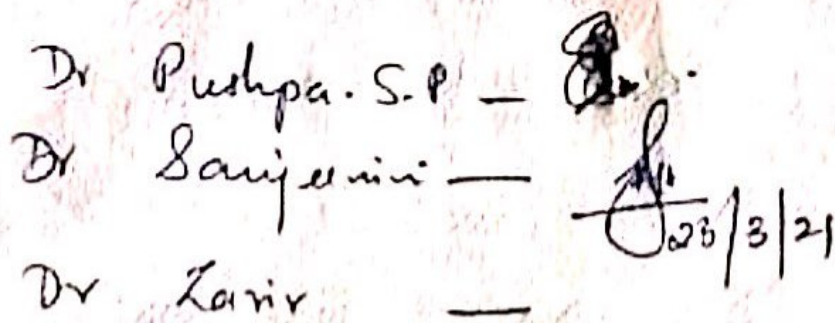 Dr Pushpa. S. P —
Dr Sanjeevini —
23/3/21
Dr Zarir —